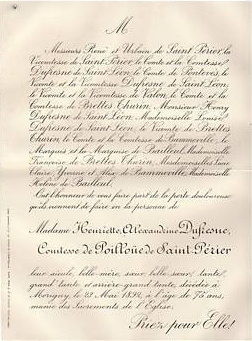 M
Messieurs René et Urbain de Saint Périer, la
Vicomtesse de Saint Périer, le Comte et la Comtesse
Dufresne de Saint Léon, le Comte de Poulevès, le
Vicomte et la Vicomtesse Dufresne de Saint Léon,
le Vicomte et la Vicomtesse de Valon, le Comte et la
Comtesse de Brettes Thurin, Monsieur Henry
Dufresne de Saint Léon, Mademoiselle Louise
Dufresne de Saint Léon, le Vicomte de Brettes
Thurin, le Comte et la Comtesse de Bammeville, le
Marquis et la Marquise de Bailleul, Mademoiselle
Françoise de Brettes Thurin, Mesdemoiselles
Claire, Yvonne et de Bammeville, Mademoiselle
Hélène de Bailleul,
Ont l'honneur de vous faire part de la perte douloureuse
qu'ils viennent de faire en la personne de
Madame Henriette, Alexandrine Dufresne,
Comtesse de Poilloüe de Saint Périer
leur aïeule, belle mère, sœur, belle sœur, tante,
grand tante et arrière grand tante, décédée à
Morigny, le 23 Mai 1894, à l'âge de 75 ans,
munie des Sacrements de l'Église.
Priez pour Elle!